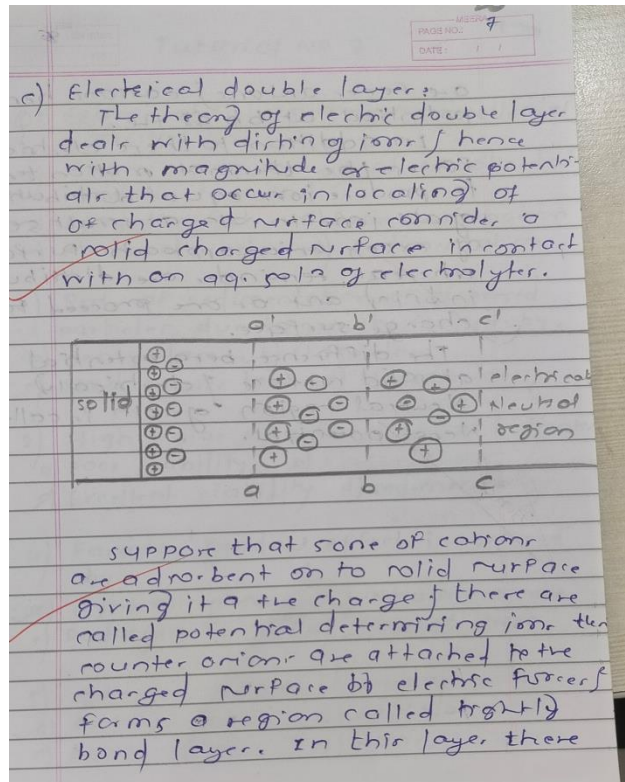 PAGE NO.: 7
DATE: / /
c) Electrical double layer:
The theory of electric double layer
deals with disting ions & hence
with magnitude of electric potenti-
als that occur in localing of
of charged surface consider a
solid charged surface in contact
with an aq. soln of electrolytes.
a' b' c'
solid
electrical
Neutral
region
a b c
suppose that some of cations
are adsorbent on to solid surface
giving it a +ve charge & there are
called potential determining ions then
counter anions are attached to the
charged surface by electric forces &
forms a region called tightly
bond layer. In this layer there